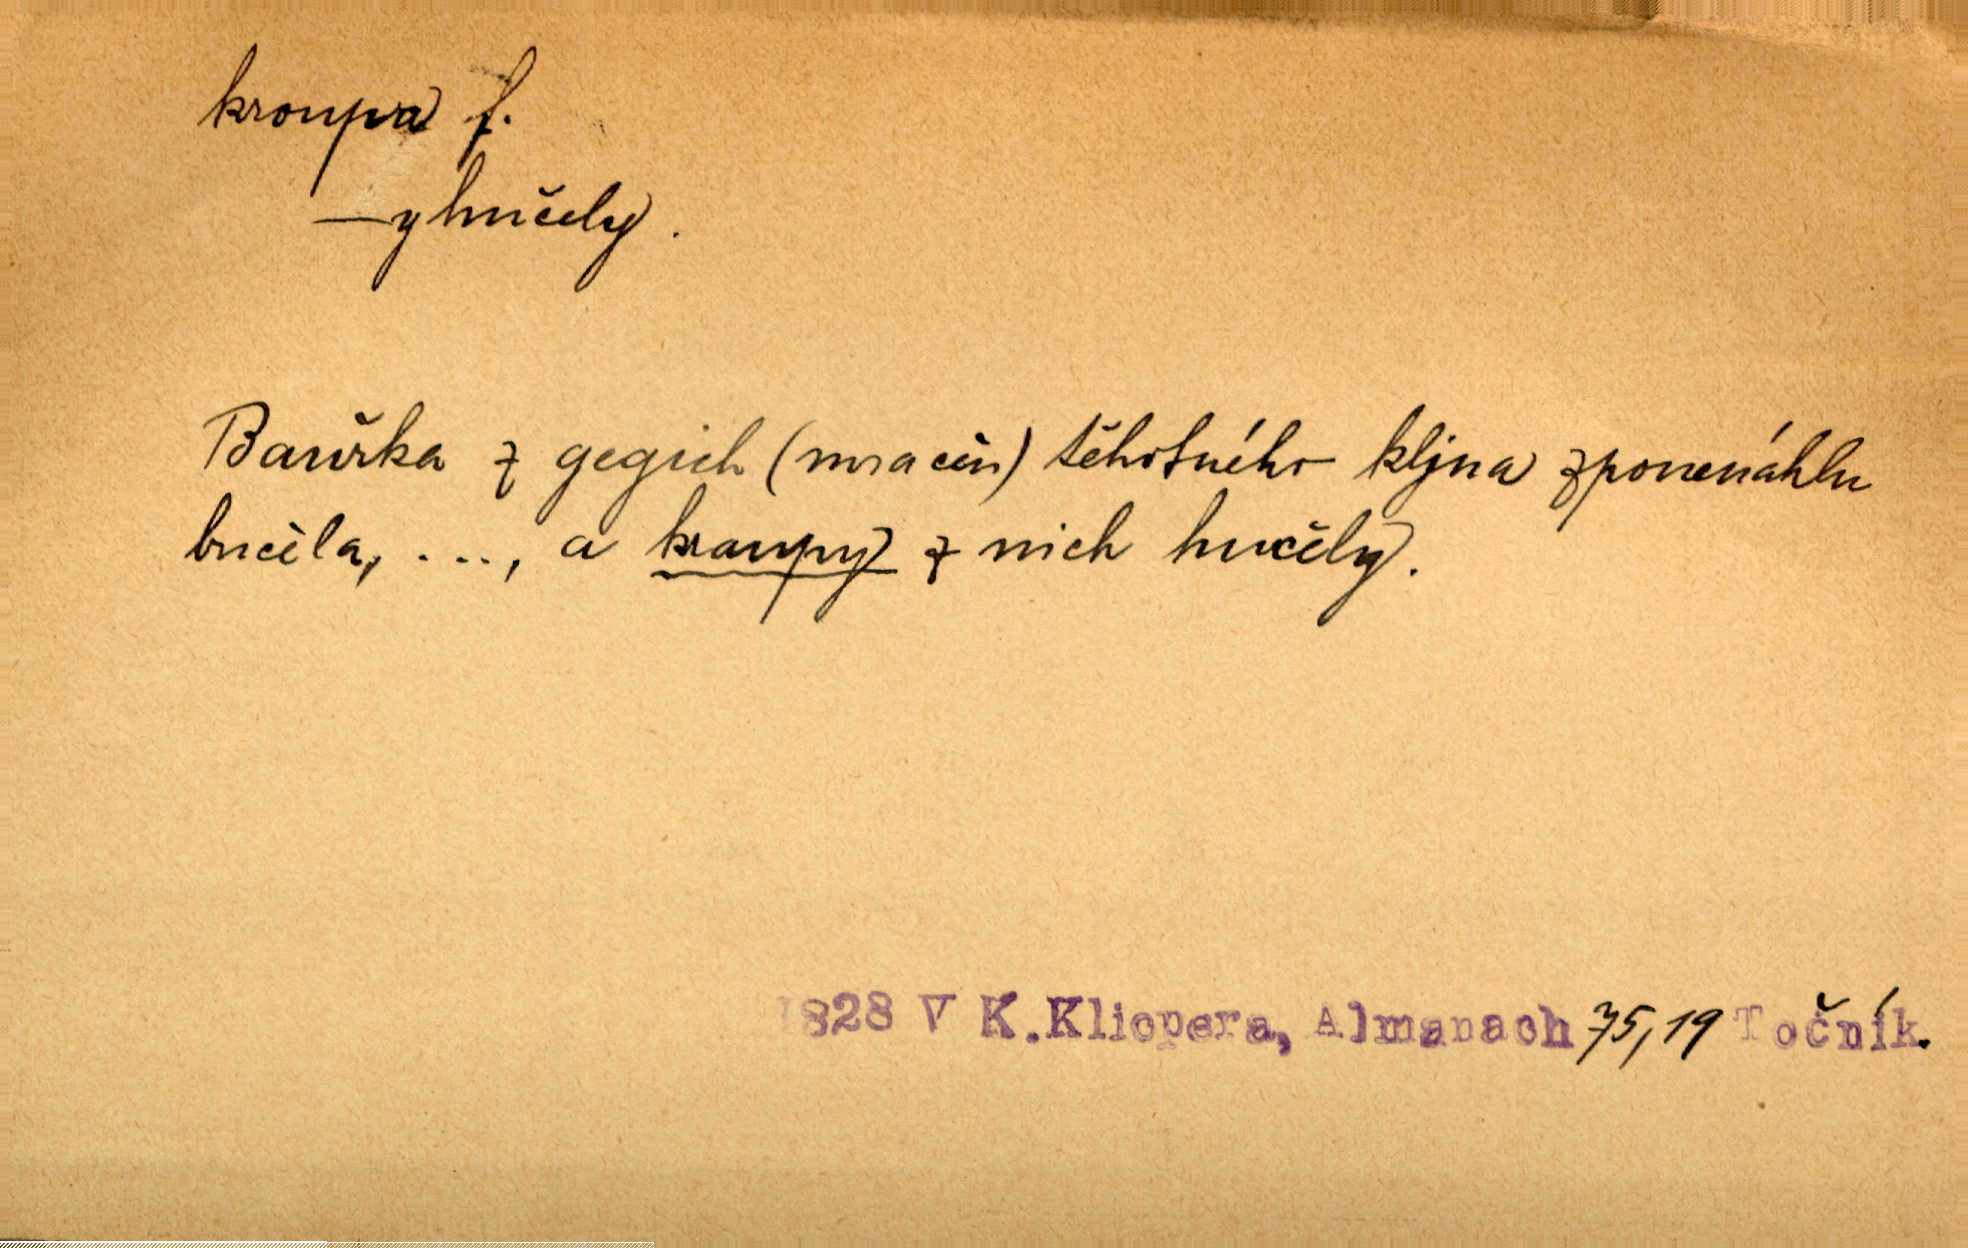 kroupa f.
—y hučely.
Bauřka z gegich (mračen) těhotného kljna zponenáhlu
bučela, ..., a kraupy z nich hučely.
1828 V K.Klicpera, Almanach 75,19 Točník.